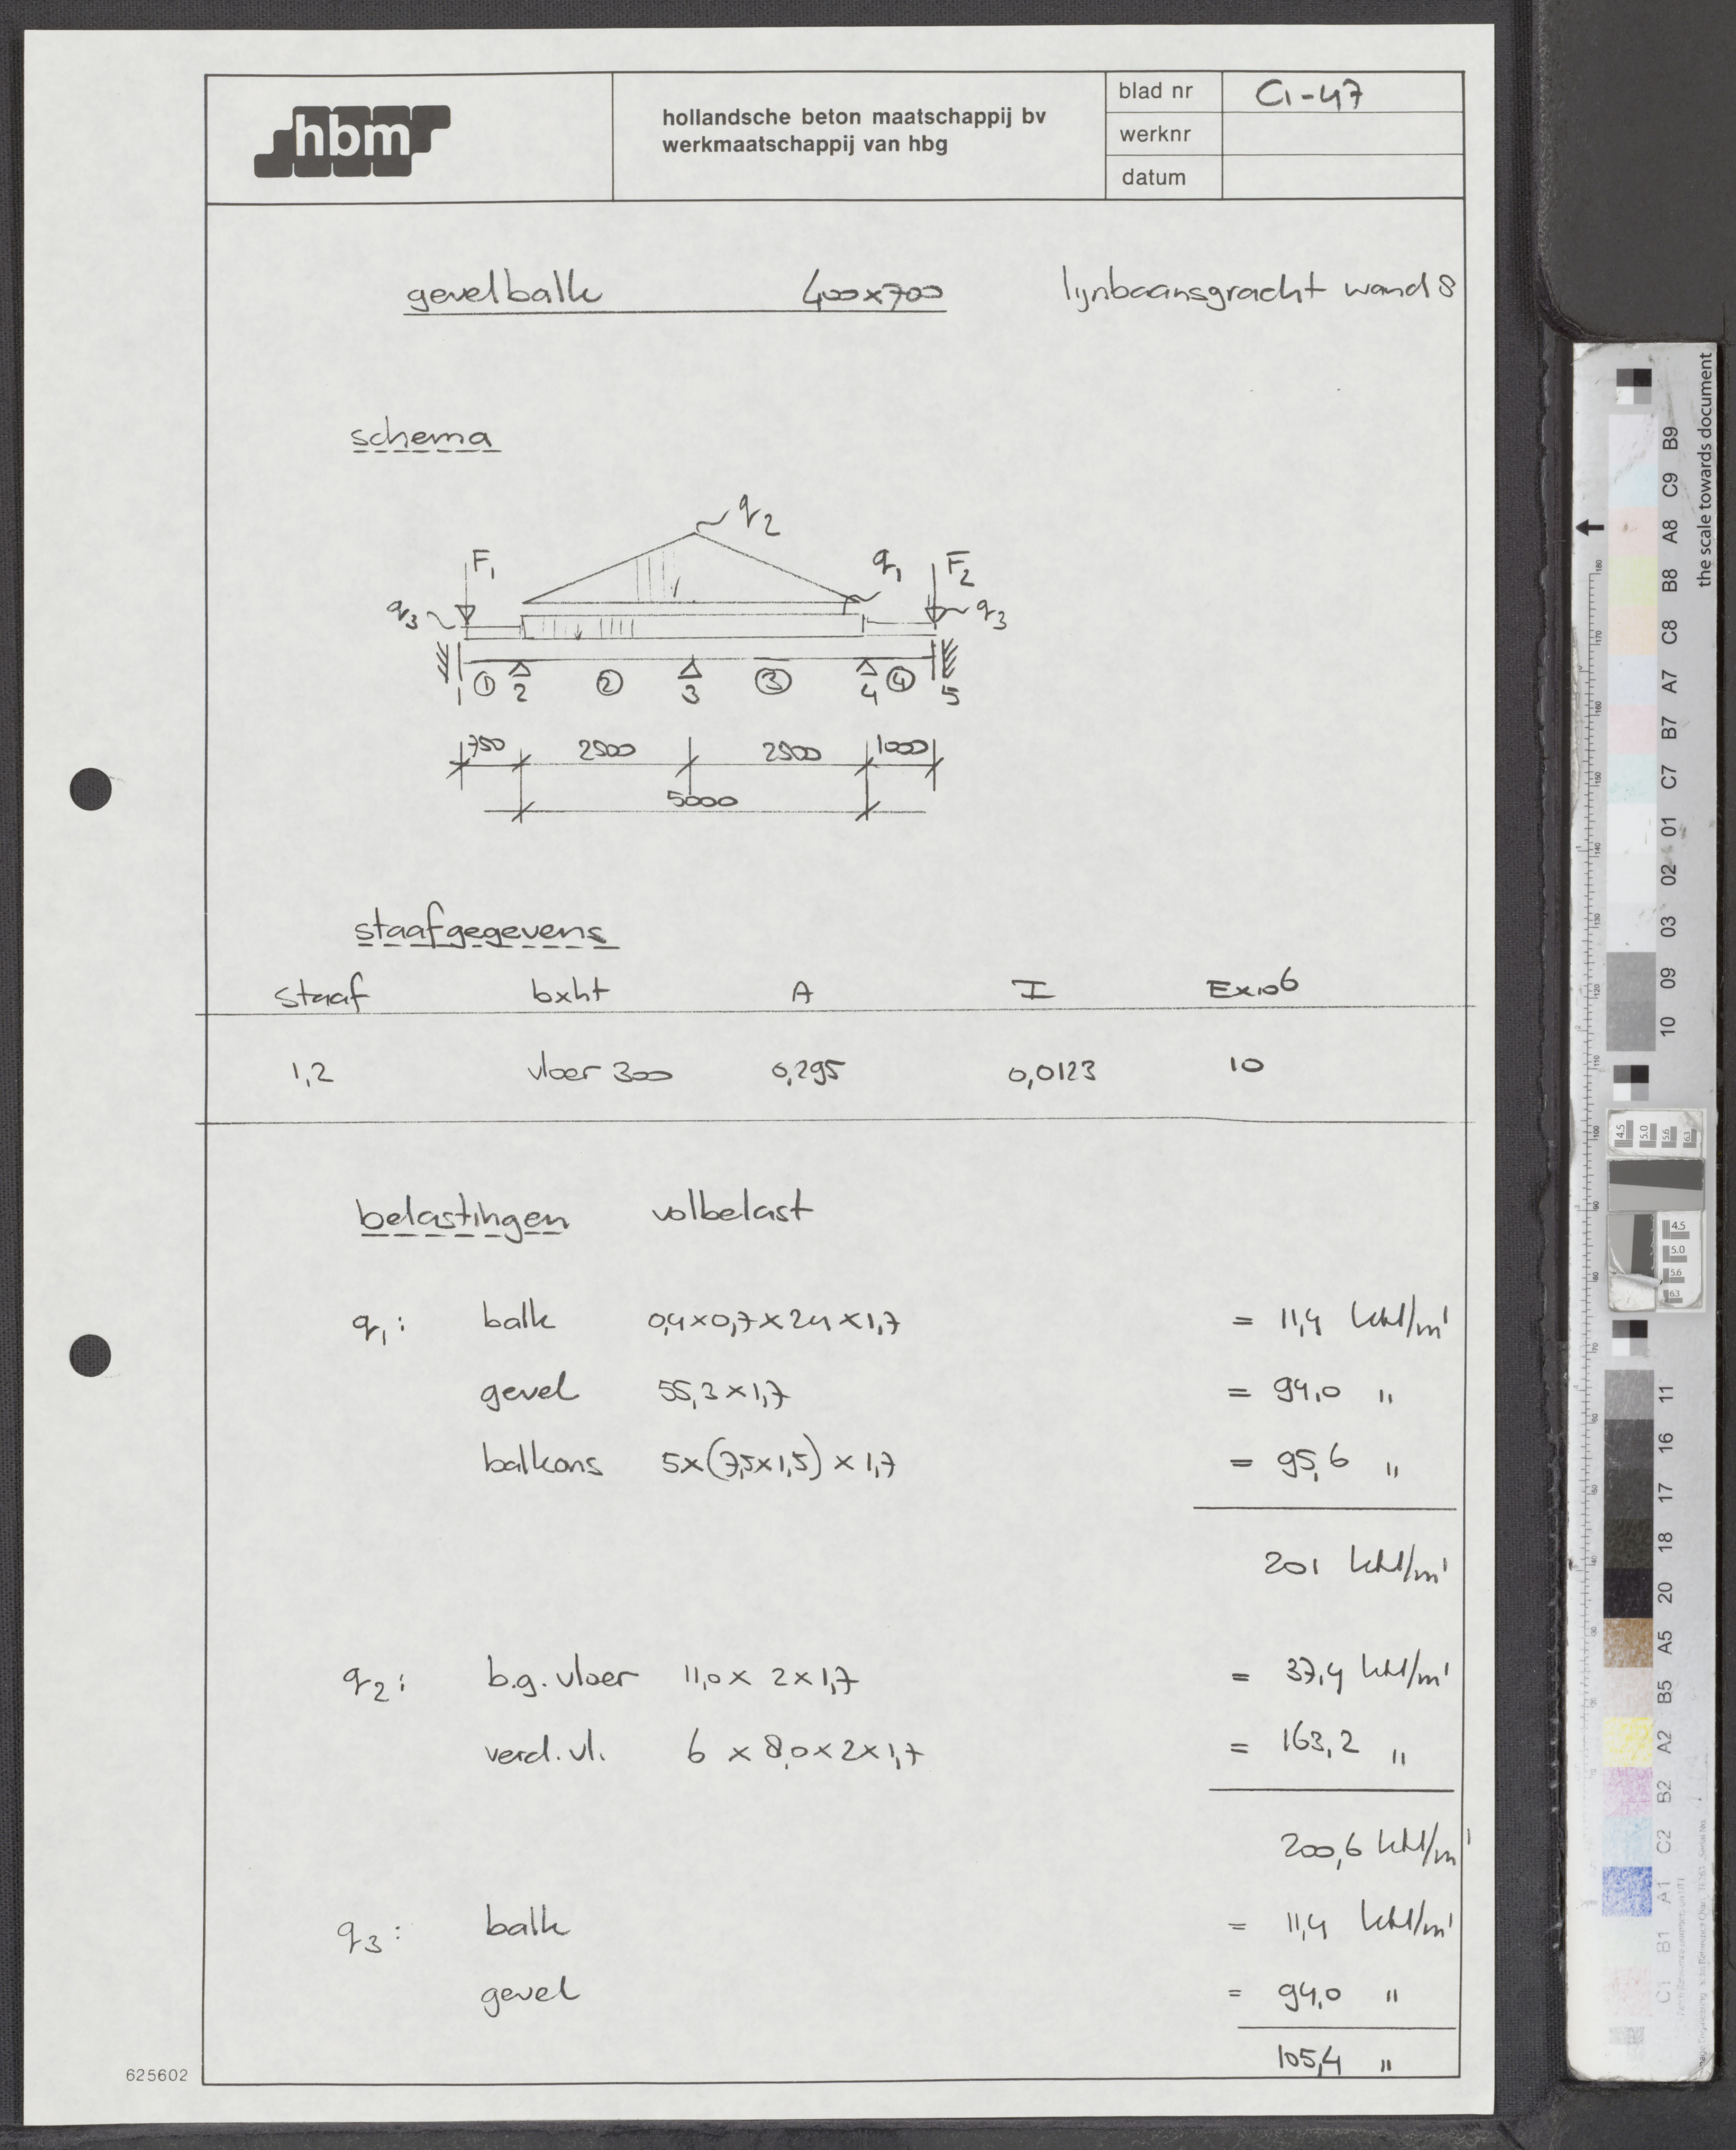 hbm
hollandsche beton maatschappij bv
werkmaatschappij van hbg
blad nr C1-47
werknr
datum
gevelbalk 400x700 lijnbaansgracht wand 8
schema
q2
F1 q1 F2
q3 q3
1 2 3 4
1 2 3 4 5
750 2500 2500 1000
5000
staafgegevens
staaf bxht A I Ex10⁶
1,2 vloer 300 0,295 0,0123 10
belastingen volbelast
q1: balk 0,4x0,7x24x1,7 = 11,4 kN/m'
gevel 55,3x1,7 = 94,0 "
balkons 5x(7,5x1,5)x1,7 = 95,6 "
201 kN/m'
q2: b.g. vloer 11,0x2x1,7 = 37,4 kN/m'
verd. vl. 6x8,0x2x1,7 = 163,2 "
200,6 kN/m'
q3: balk = 11,4 kN/m'
gevel = 94,0 "
105,4 "
625602
the scale towards document
B9
C9
A8
B8
C8
A7
B7
C7
01
02
03
09
10
11
16
17
18
20
A5
B5
A2
B2
C2
A1
B1
C1